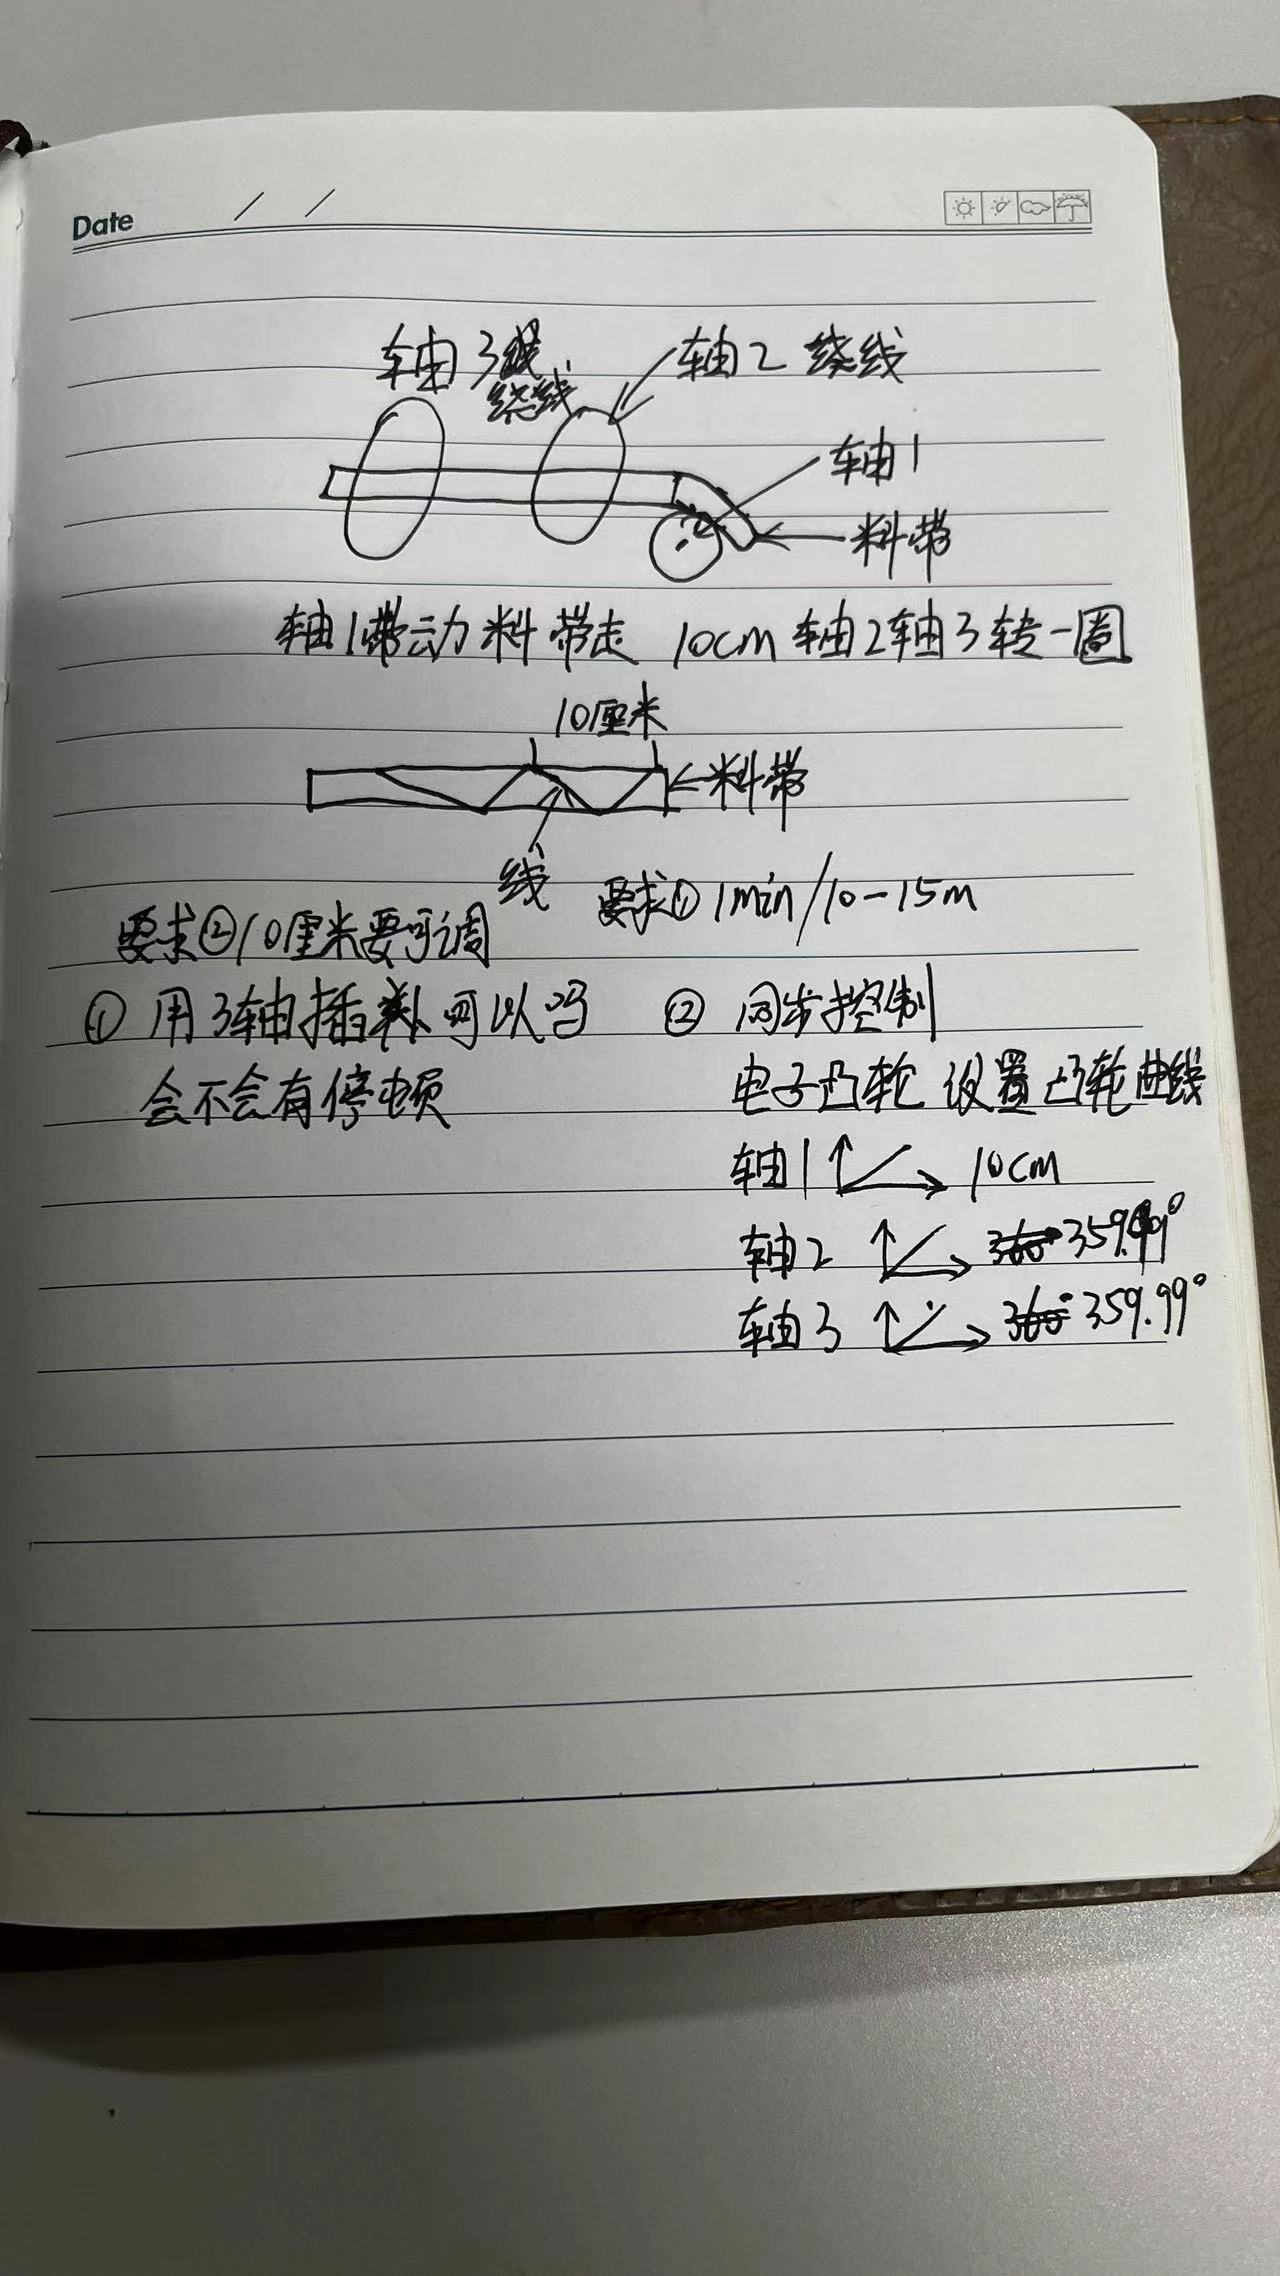 Date / /
轴3
绕线
轴2 绕线
轴1
料带
轴1带动料带走 10cm 轴2轴3转一圈
10厘米
料带
线
要求① 1min/10-15m
要求②10厘米要可调
① 用3轴插补可以吗
会不会有停顿
② 同步控制
电子凸轮 设置凸轮曲线
轴1 10cm
轴2 359.99°
轴3 359.99°